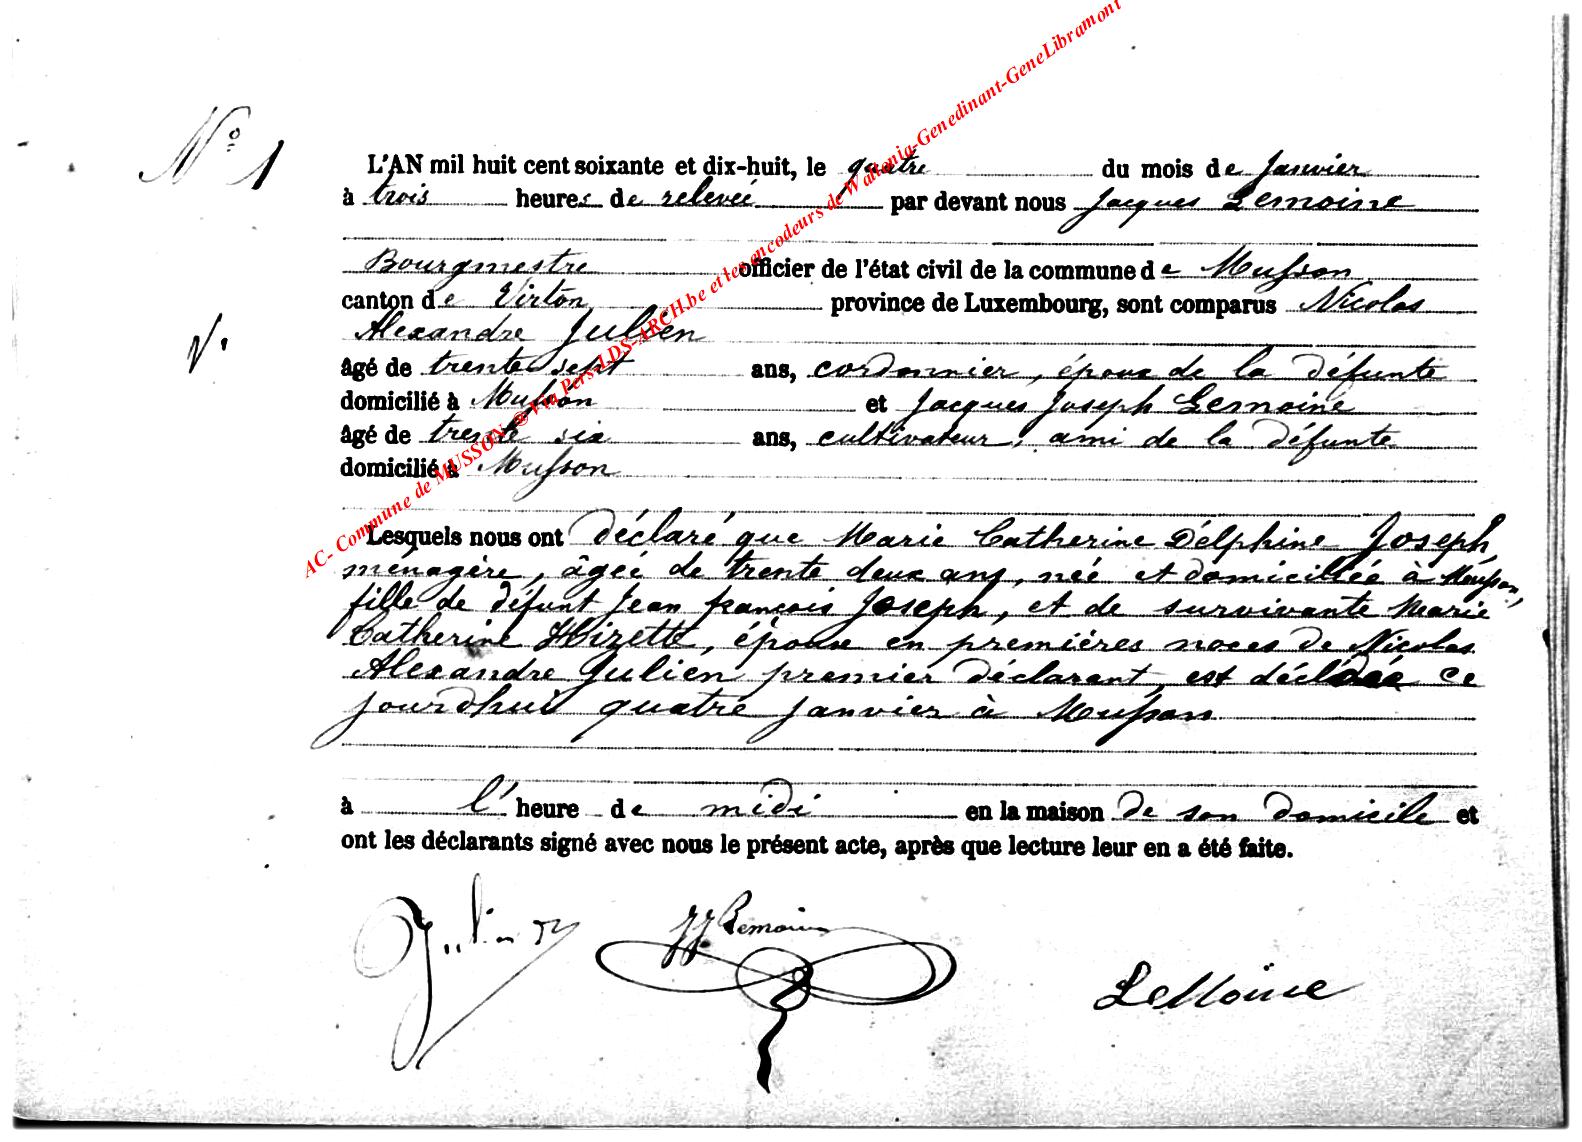 N° 1
L'AN mil huit cent soixante et dix-huit, le quatre du mois de Janvier
à trois heures de relevée par devant nous Jacques Lemoine
Bourgmestre officier de l'état civil de la commune de Musson
canton de Virton province de Luxembourg, sont comparus Nicolas
Alexandre Julien
âgé de trente sept ans, cordonnier, époux de la défunte
domicilié à Musson et Jacques Joseph Lemoine
âgé de trente six ans, cultivateur, ami de la défunte
domicilié à Musson
Lesquels nous ont déclaré que Marie Catherine Délphine Joseph,
ménagère, âgée de trente deux ans, née et domiciliée à Musson,
fille de défunt Jean françois Joseph, et de survivante Marie
Catherine Hizette, épouse en premières noces de Nicolas
Alexandre Julien premier déclarant, est décédée ce
jourdhui quatre Janvier à Musson
à l'heure de midi en la maison de son domicile et
ont les déclarants signé avec nous le présent acte, après que lecture leur en a été faite.
Julien JJ Lemoine
LeMoine
AC- Commune de MUSSON ® Via Pers-LDS-ARCH.be et les encodeurs de Wallonia-Genedinant-GeneLibramont